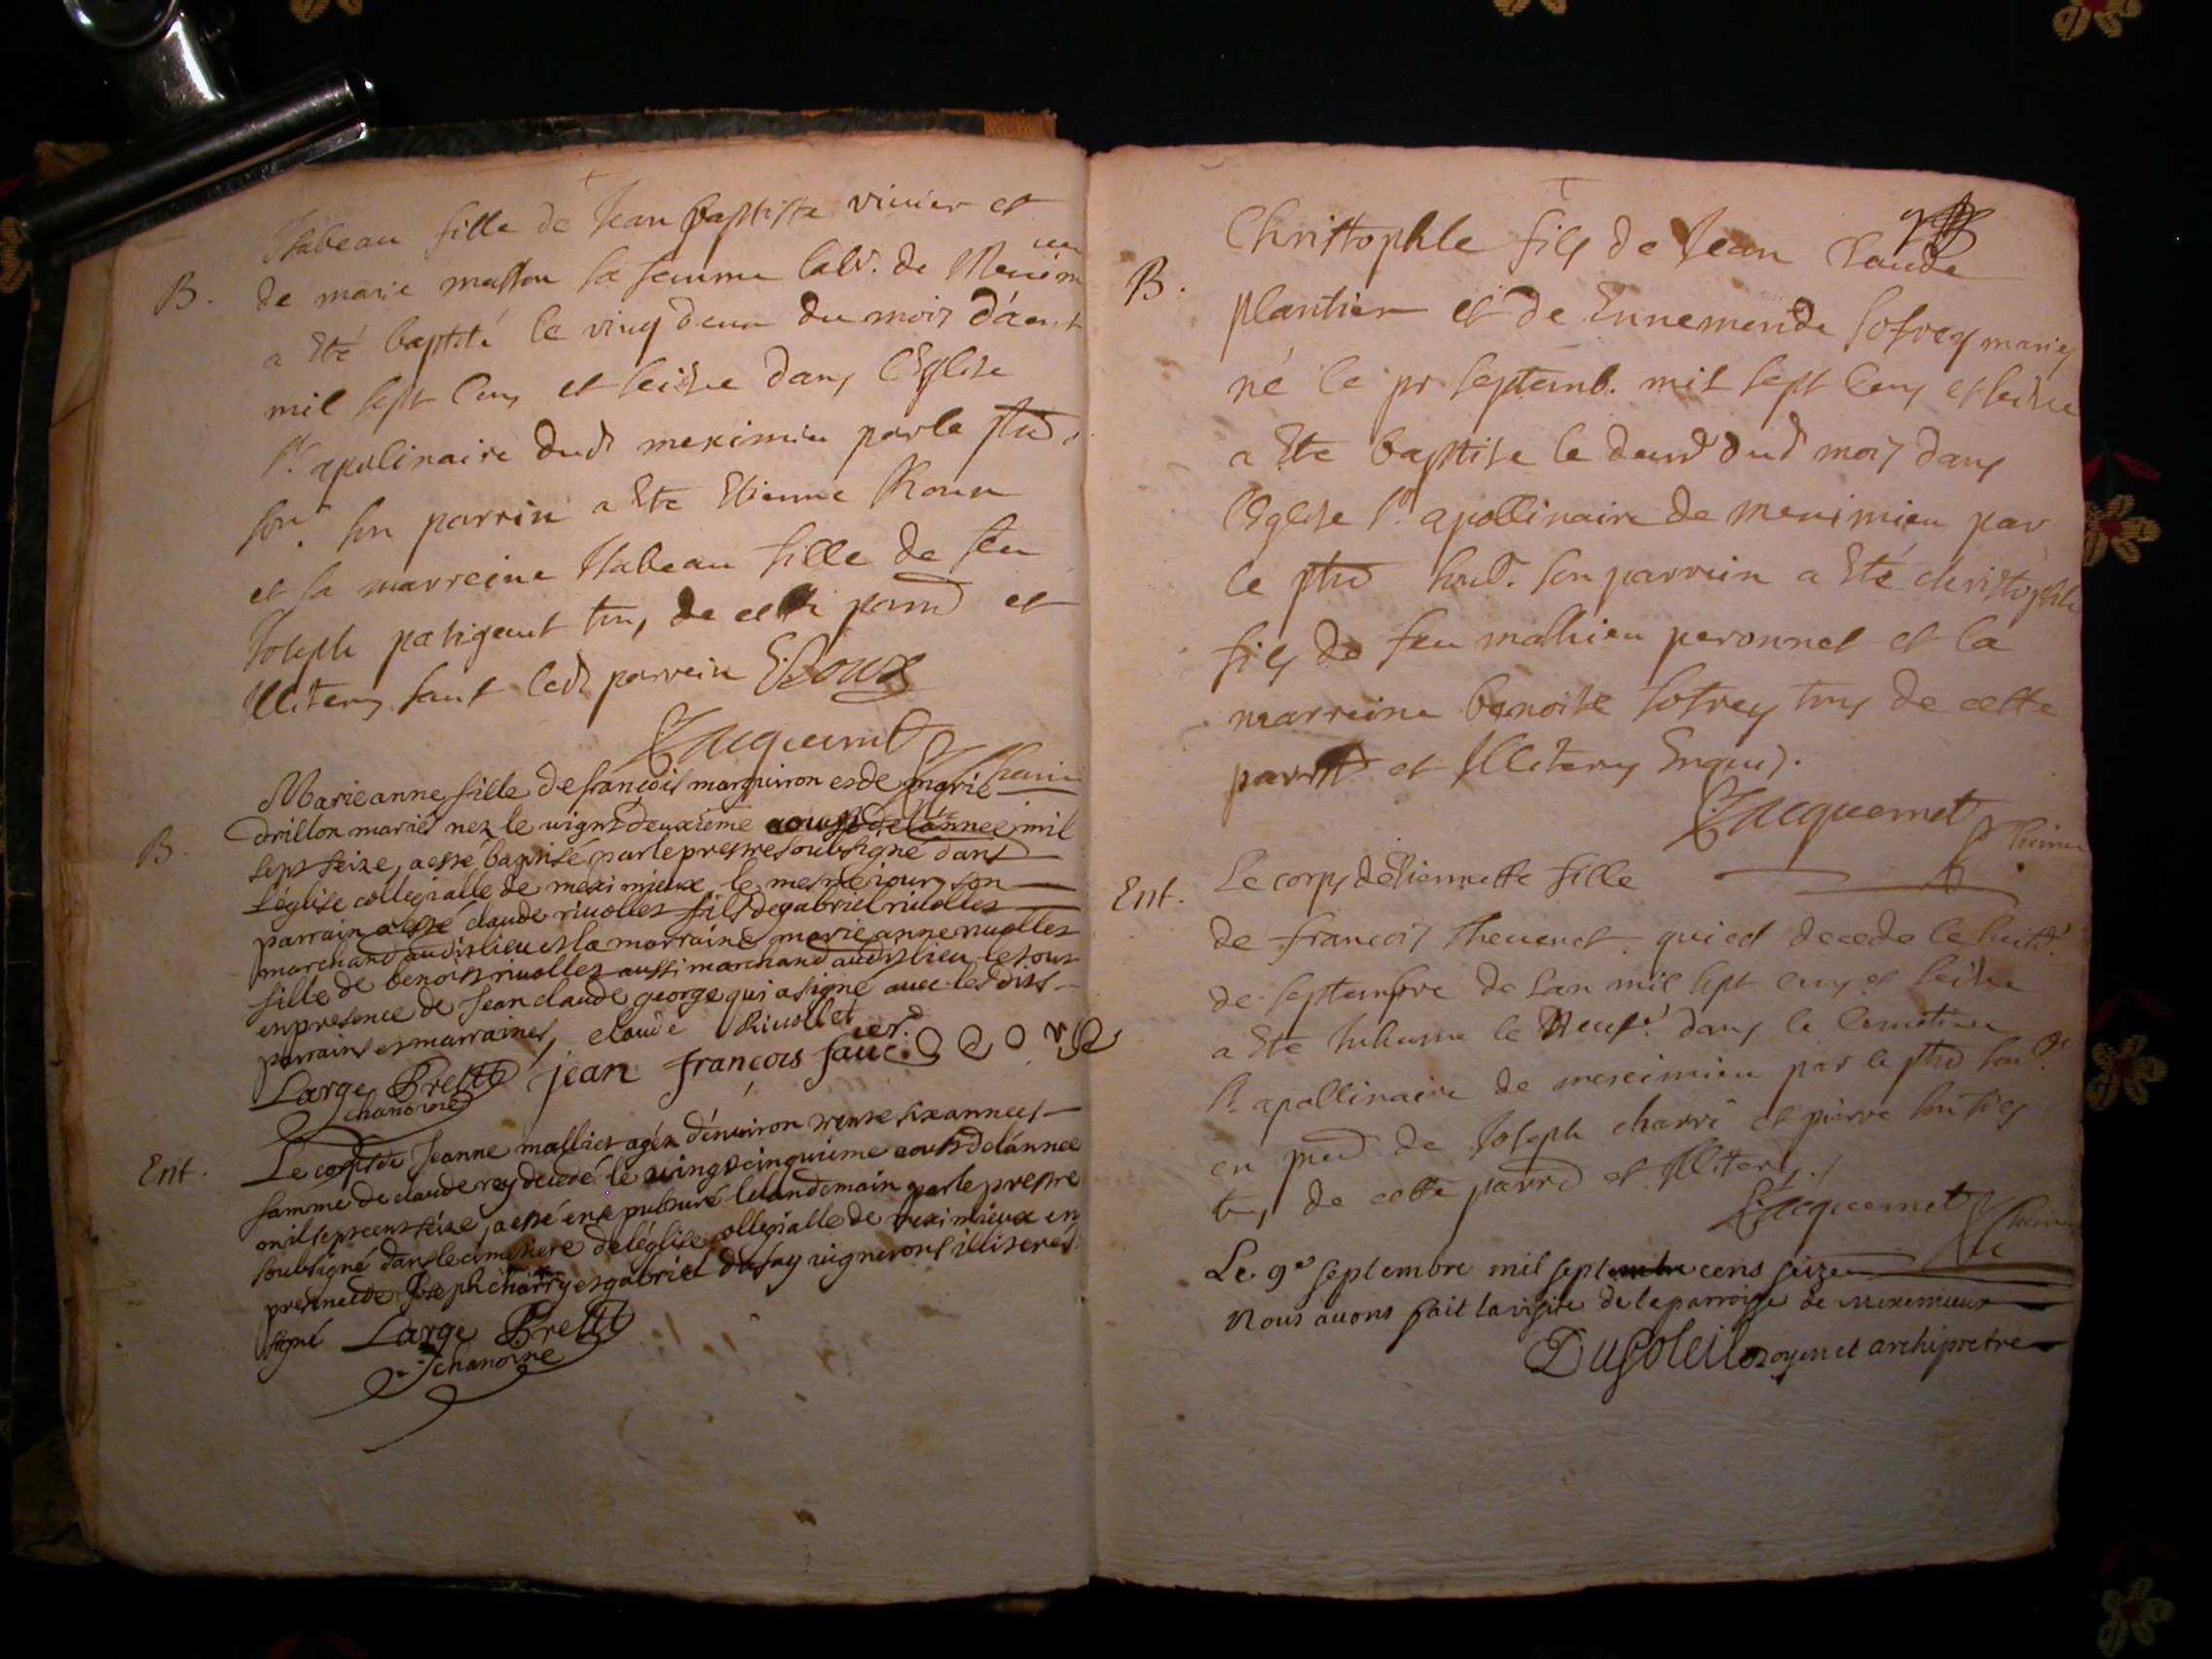 Isabeau fille de Jean baptiste vivier et
B. de marie masson sa femme lab. de Meximieu
a Eté baptisé le vingt deux du mois d'aout
mil sept cens et seisze dans l'Eglise
St. apolinaire dud meximieu par le ptre
son parrin a Ete Etienne Roux
et sa marreine Isabeau fille de feu
Joseph patigeaut tous de cette parre et
Illiterez sauf led parrein E: Roux
Jacquemet
Marie anne fille de françois marguiron et de marie
B. drillon mariés nez le vignt deuxieme aoust de lánnee mil
sept seize, a esté baptisé par le prestre soubsigné dans
l'église collegialle de meximieux, le mesme jour, son
parrain a esté claude rivollet fils de gabriel rivollet
marchand audit lieu et la marraine marie anne rivollet
fille de benoist rivollet aussi marchand audit lieu le tout
en presence de Jean claude george qui a signé avec les dits
parrains et marraines, claude Rivollet
Large Prestre chanoine jean françois favier george
Ent. Le corps de Jeanne malliet agéz d'environ trente six annees
famme de claude rey decedé le vingt cinquieme aoust de lánnee
mil sept cent seize, a esté ensepulturé le landemain par le prestre
soubsigné dans le cimetiere de léglise collegialle de meximieux en
presence de Joseph charry et gabriel dufay vignerons illiteres
signé Large Prestre
chanoine
Christophle fils de Jean Claude
B. plantier et de Ennemende Sofrey mariez
né le pr septemb. mil sept cens et seisze
a Ete baptise le deux dud mois dans
l'Eglise St. apollinaire de meximieu par
le ptre soub. son parrein a Eté christophle
fils de feu mathieu peronnet et la
marreine benoite sofrey tous de cette
parre et Illiterez Enquis.
Jacquemet
Ent. Le corps détiennette fille
de francois thevenet qui est decede le huit
de septembre de lan mil sept cens et seisze
a Ete inhume le Neuf dans le cemetiere
St. apollinaire de meximieu par le ptre soub
en pred de Joseph charri et pierre son fils
tous de cette parre et Illiterez.
Jacquemet
Le 9e septembre mil sept cens seize
Nous avons fait la visite de la parroisse de Meximieux
Dusoleil Doyen et archipretre